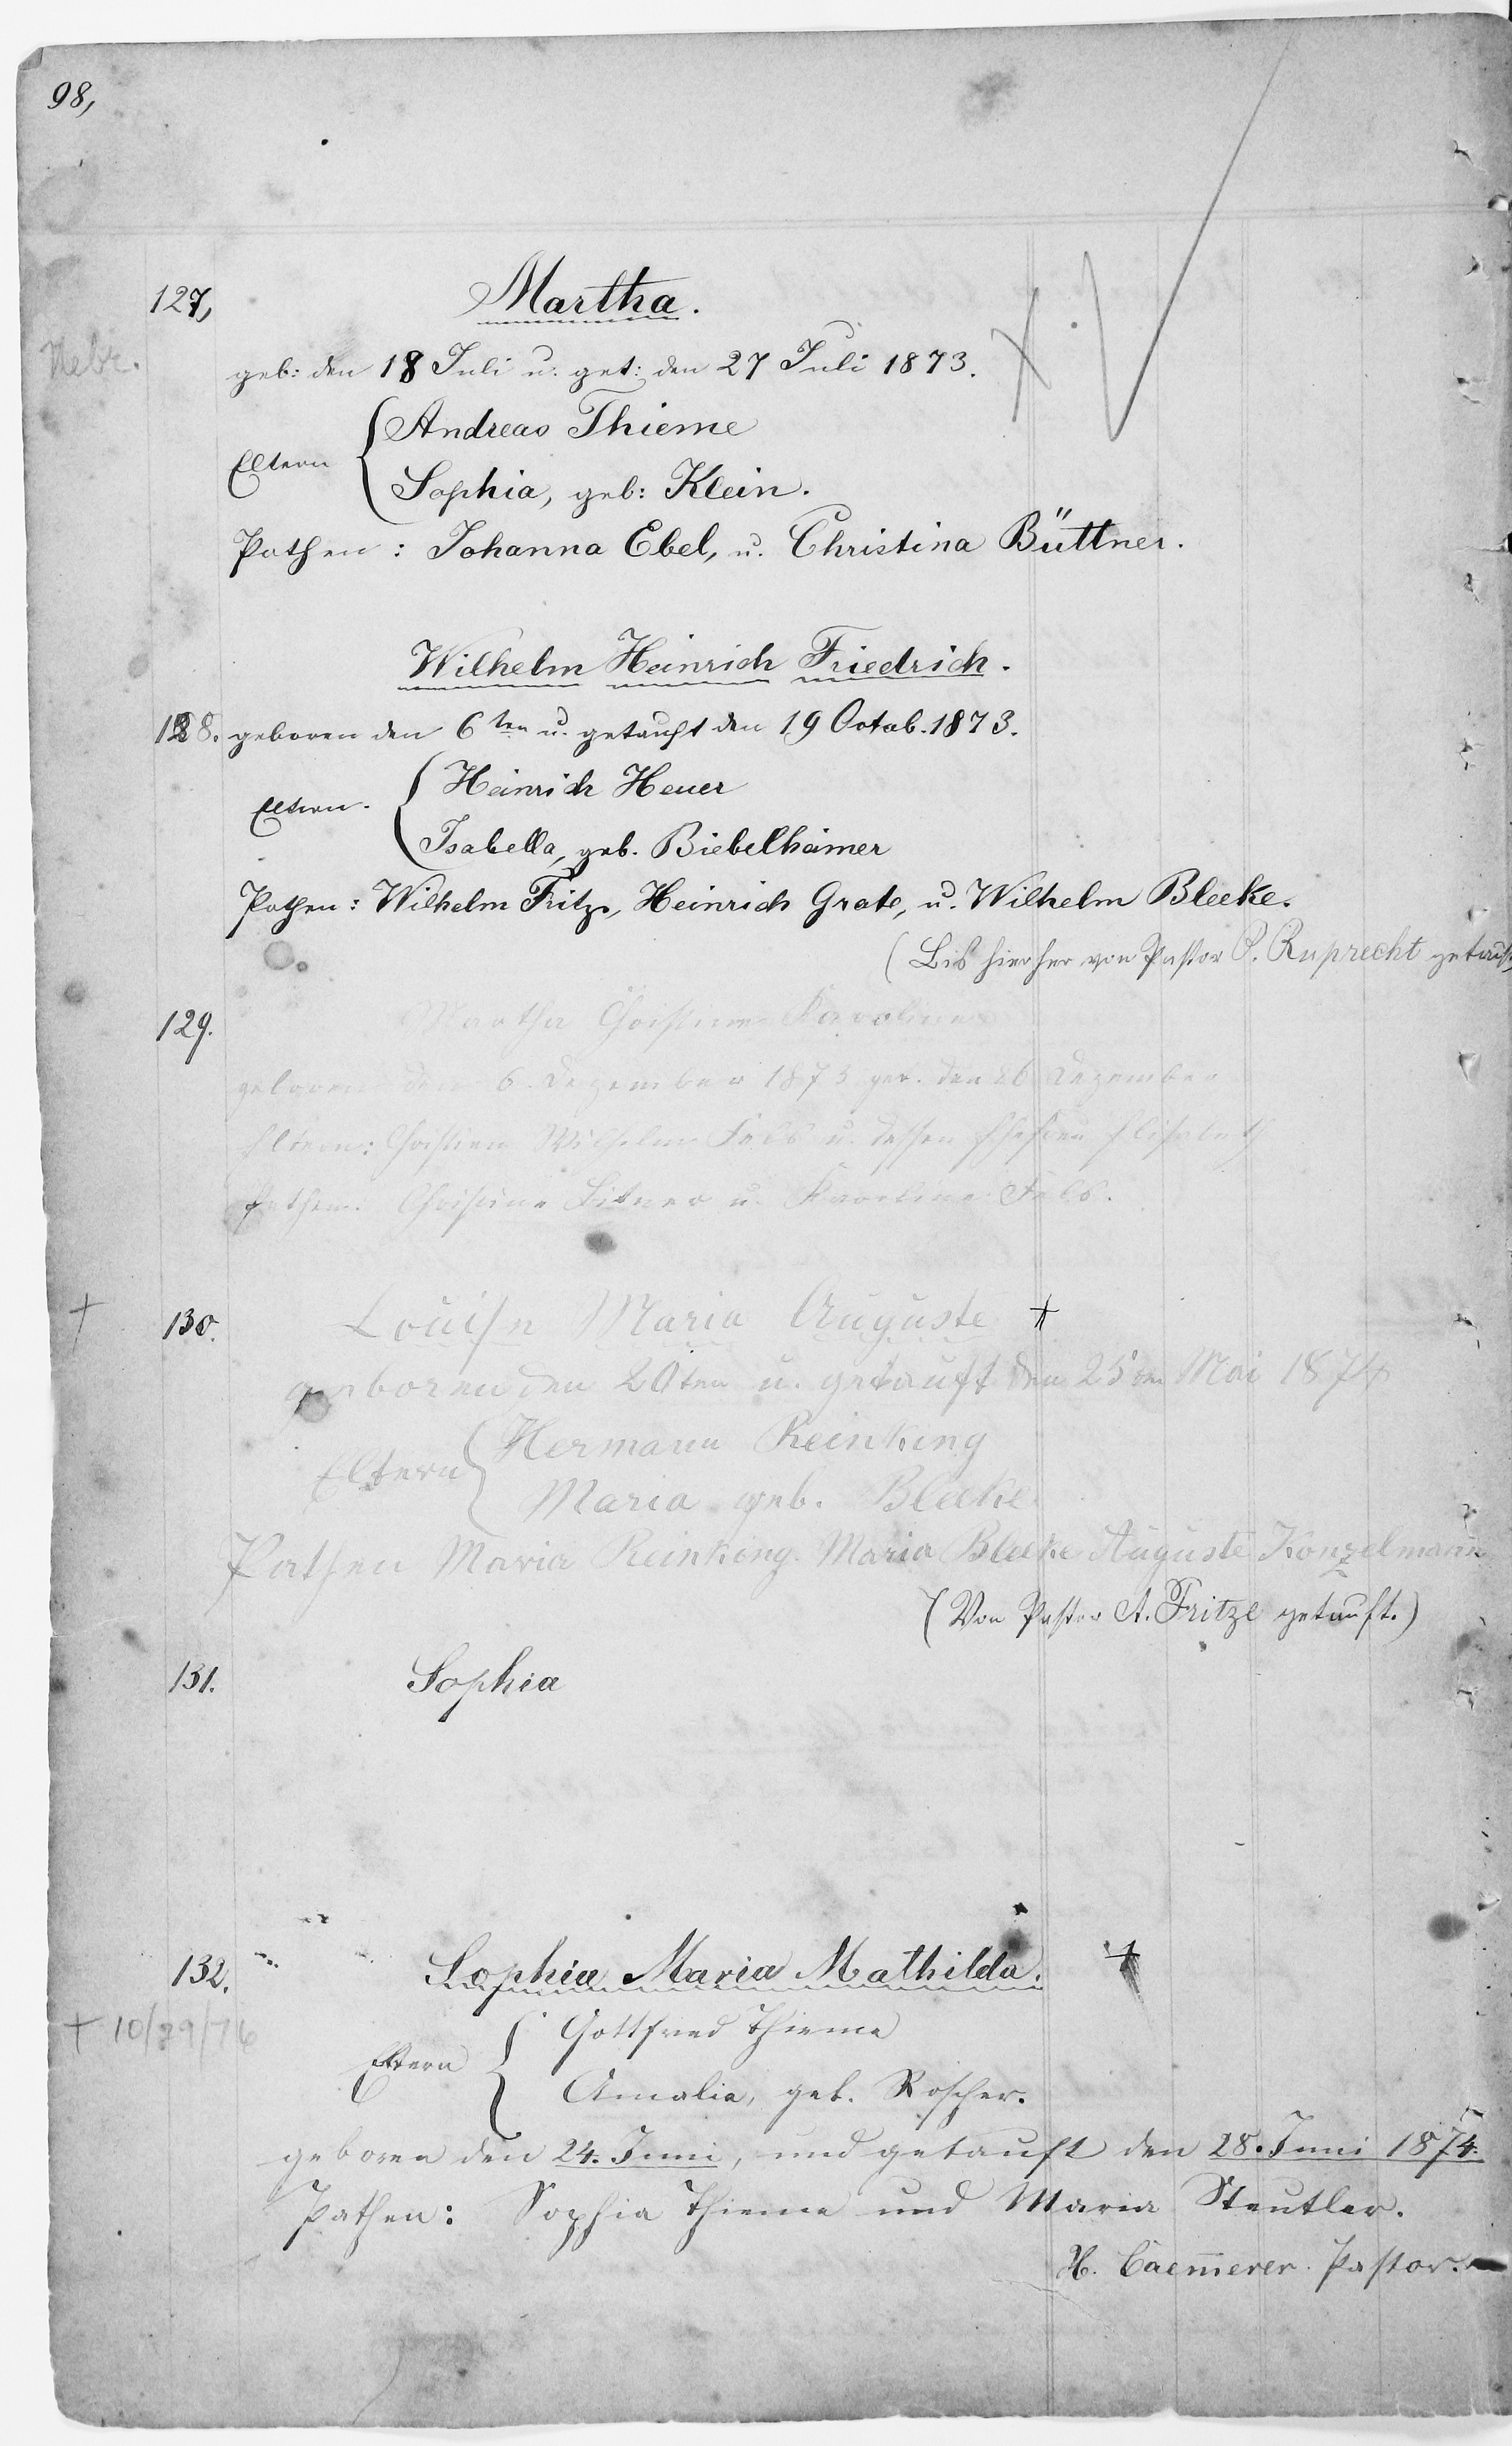 98,
127, Martha.
Nebr.
geb: den 18 Juli u. get: den 27 Juli 1873.
Eltern { Andreas Thieme
Sophia, geb: Klein.
Pathen: Johanna Ebel, u. Christina Büttner.
Wilhelm Heinrich Friedrich.
128. geboren den 6ten u. getauft den 19 Octob. 1873.
Eltern. { Heinrich Heuer
Isabella, geb. Biebelheimer
Pathen: Wilhelm Fritze, Heinrich Grote, u. Wilhelm Bleeke.
(Bis hierher von Pastor P. Ruprecht getauft
129. Martha Christine Karoline
geboren den 6. Dezember 1873 get. den 26 Dezember
Eltern: Christian Wilhelm Fels u. dessen Ehefrau Elisabeth
Pathen: Christine Bitner u. Karoline Fels.
+ 130. Louise Maria Auguste +
geboren den 20ten u. getauft den 25ten Mai 1874
Eltern { Hermann Reinking
Maria geb. Bleeke
Pathen Maria Reinking. Maria Bleeke Auguste Konzelmann
(Von Pastor A. Fritze getauft.)
131. Sophia
132. Sophia Maria Mathilda. +
+ 10/29/76
Eltern { Gottfried Thieme
Amalia, geb. Roscher.
geboren den 24. Juni, und getauft den 28. Juni 1874.
Pathen: Sophia Thieme und Maria Steutler.
H. Caem̅erer. Pastor.